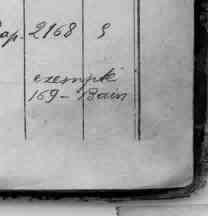 ap. 2168 9
exempté
169 - Bain